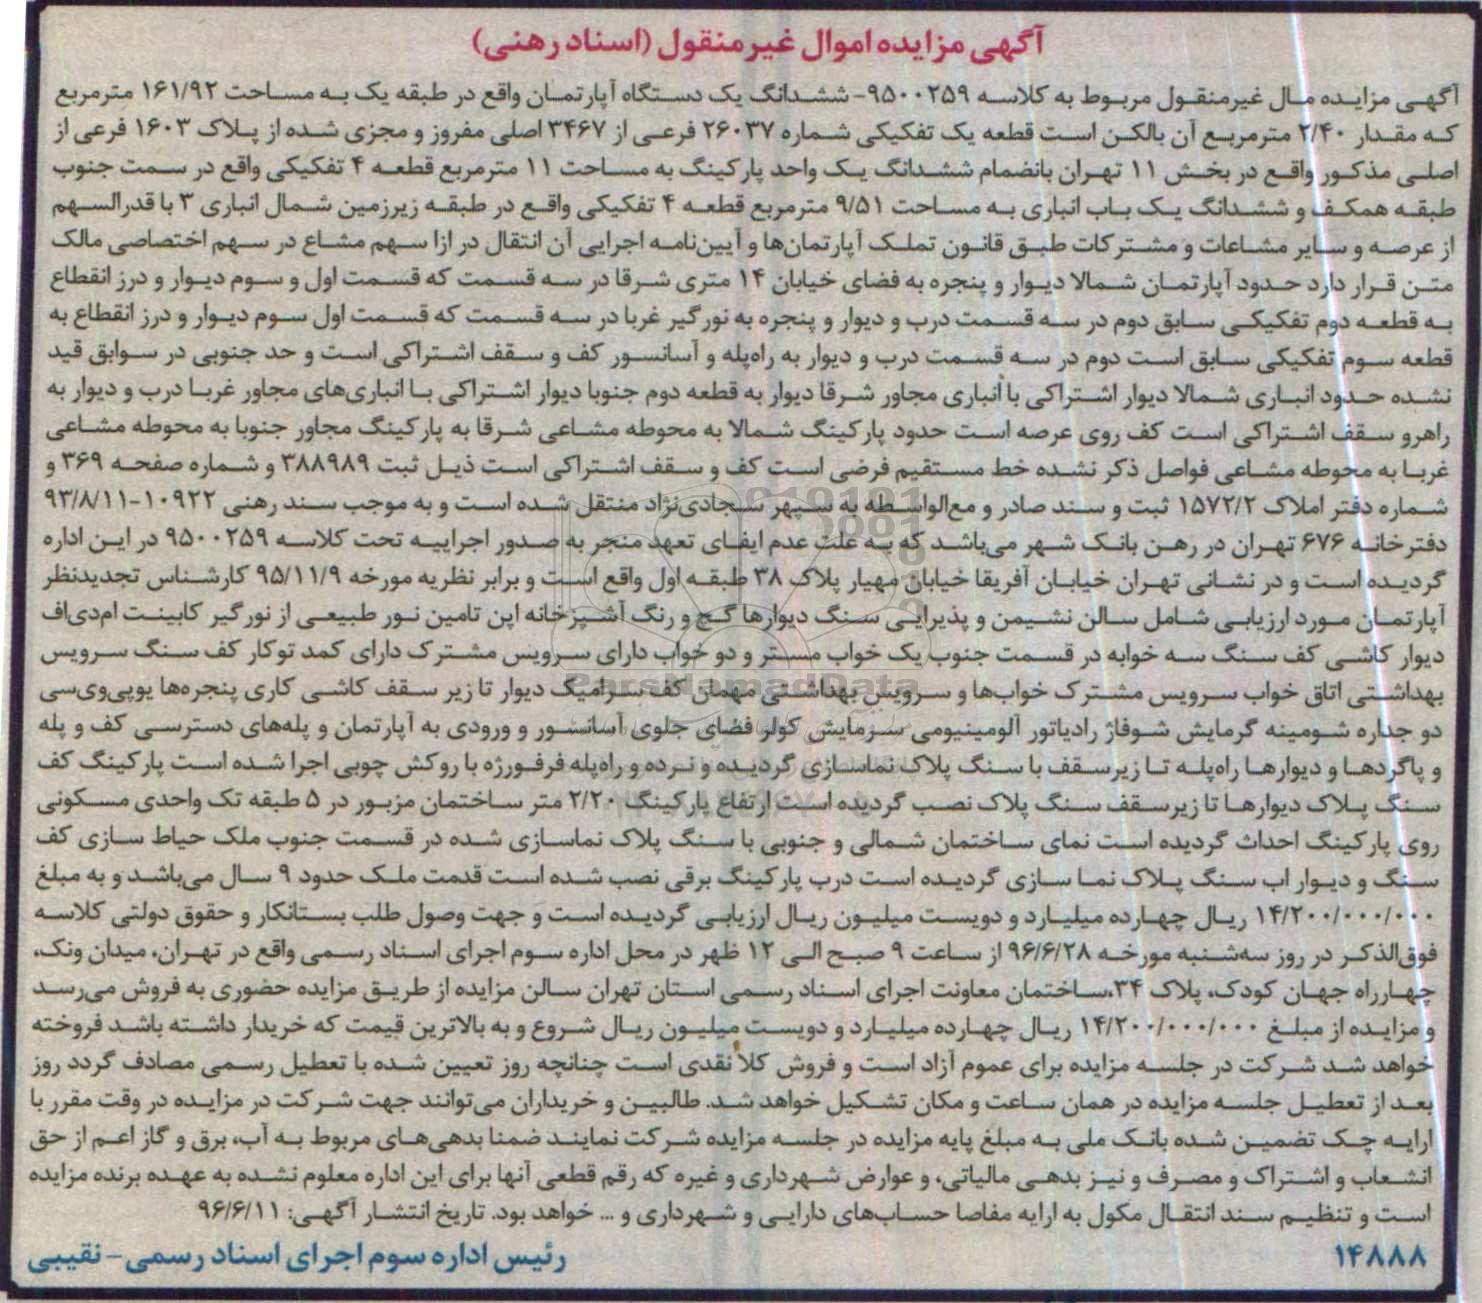 آگهی مزایده اموال غیرمنقول (اسناد رهنی)
آگهی مزایده مال غیرمنقول مربوط به کلاسه ۹۵۰۰۲۵۹- ششدانگ یک دستگاه آپارتمان واقع در طبقه یک به مساحت ۱۶۱/۹۲ مترمربع
که مقدار ۲/۴۰ مترمربع آن بالکن است قطعه یک تفکیکی شماره ۲۶۰۳۷ فرعی از ۳۴۶۷ اصلی مفروز و مجزی شده از پلاک ۱۶۰۳ فرعی از
اصلی مذکور واقع در بخش ۱۱ تهران بانضمام ششدانگ یک واحد پارکینگ به مساحت ۱۱ مترمربع قطعه ۴ تفکیکی واقع در سمت جنوب
طبقه همکف و ششدانگ یک باب انباری به مساحت ۹/۵۱ مترمربع قطعه ۴ تفکیکی واقع در طبقه زیرزمین شمال انباری ۳ با قدرالسهم
از عرصه و سایر مشاعات و مشترکات طبق قانون تملک آپارتمان‌ها و آیین‌نامه اجرایی آن انتقال در ازا سهم مشاع در سهم اختصاصی مالک
متن قرار دارد حدود آپارتمان شمالا دیوار و پنجره به فضای خیابان ۱۴ متری شرقا در سه قسمت که قسمت اول و سوم دیوار و درز انقطاع
به قطعه دوم تفکیکی سابق دوم در سه قسمت درب و دیوار و پنجره به نورگیر غربا در سه قسمت که قسمت اول سوم دیوار و درز انقطاع به
قطعه سوم تفکیکی سابق است دوم در سه قسمت درب و دیوار به راه‌پله و آسانسور کف و سقف اشتراکی است و حد جنوبی در سوابق قید
نشده حدود انباری شمالا دیوار اشتراکی با انباری مجاور شرقا دیوار به قطعه دوم جنوبا دیوار اشتراکی با انباری‌های مجاور غربا درب و دیوار به
راهرو سقف اشتراکی است کف روی عرصه است حدود پارکینگ شمالا به محوطه مشاعی شرقا به پارکینگ مجاور جنوبا به محوطه مشاعی
غربا به محوطه مشاعی فواصل ذکر نشده خط مستقیم فرضی است کف و سقف اشتراکی است ذیل ثبت ۳۸۸۹۸۹ و شماره صفحه ۳۶۹ و
شماره دفتر املاک ۱۵۷۲/۲ ثبت و سند صادر و مع‌الواسطه به سپهر سجادی‌نژاد منتقل شده است و به موجب سند رهنی ۱۰۹۲۲-۹۳/۸/۱۱
دفترخانه ۶۷۶ تهران در رهن بانک شهر می‌باشد که به علت عدم ایفای تعهد منجر به صدور اجراییه تحت کلاسه ۹۵۰۰۲۵۹ در این اداره
گردیده است و در نشانی تهران خیابان آفریقا خیابان مهیار پلاک ۳۸ طبقه اول واقع است و برابر نظریه مورخه ۹۵/۱۱/۹ کارشناس تجدیدنظر
آپارتمان مورد ارزیابی شامل سالن نشیمن و پذیرایی سنگ دیوارها گچ و رنگ آشپزخانه اپن تامین نور طبیعی از نورگیر کابینت ام‌دی‌اف
دیوار کاشی کف سنگ سه خوابه در قسمت جنوب یک خواب مستر و دو خواب دارای سرویس مشترک دارای کمد توکار کف سنگ سرویس
بهداشتی اتاق خواب سرویس مشترک خواب‌ها و سرویس بهداشتی مهمان کف سرامیک دیوار تا زیر سقف کاشی کاری پنجره‌ها یوپی‌وی‌سی
دو جداره شومینه گرمایش شوفاژ رادیاتور آلومینیومی سرمایش کولر فضای جلوی آسانسور و ورودی به آپارتمان و پله‌های دسترسی کف و پله
و پاگردها و دیوارها راه‌پله تا زیرسقف با سنگ پلاک نماسازی گردیده و نرده و راه‌پله فرفورژه با روکش چوبی اجرا شده است پارکینگ کف
سنگ پلاک دیوارها تا زیرسقف سنگ پلاک نصب گردیده است ارتفاع پارکینگ ۲/۲۰ متر ساختمان مزبور در ۵ طبقه تک واحدی مسکونی
روی پارکینگ احداث گردیده است نمای ساختمان شمالی و جنوبی با سنگ پلاک نماسازی شده در قسمت جنوب ملک حیاط سازی کف
سنگ و دیوار اب سنگ پلاک نما سازی گردیده است درب پارکینگ برقی نصب شده است قدمت ملک حدود ۹ سال می‌باشد و به مبلغ
۱۴/۲۰۰/۰۰۰/۰۰۰ ریال چهارده میلیارد و دویست میلیون ریال ارزیابی گردیده است و جهت وصول طلب بستانکار و حقوق دولتی کلاسه
فوق‌الذکر در روز سه‌شنبه مورخه ۹۶/۶/۲۸ از ساعت ۹ صبح الی ۱۲ ظهر در محل اداره سوم اجرای اسناد رسمی واقع در تهران، میدان ونک،
چهارراه جهان کودک، پلاک ۳۴،ساختمان معاونت اجرای اسناد رسمی استان تهران سالن مزایده از طریق مزایده حضوری به فروش می‌رسد
و مزایده از مبلغ ۱۴/۲۰۰/۰۰۰/۰۰۰ ریال چهارده میلیارد و دویست میلیون ریال شروع و به بالاترین قیمت که خریدار داشته باشد فروخته
خواهد شد شرکت در جلسه مزایده برای عموم آزاد است و فروش کلاً نقدی است چنانچه روز تعیین شده با تعطیل رسمی مصادف گردد روز
بعد از تعطیل جلسه مزایده در همان ساعت و مکان تشکیل خواهد شد. طالبین و خریداران می‌توانند جهت شرکت در مزایده در وقت مقرر با
ارایه چک تضمین شده بانک ملی به مبلغ پایه مزایده در جلسه مزایده شرکت نمایند ضمنا بدهی‌های مربوط به آب، برق و گاز اعم از حق
انشعاب و اشتراک و مصرف و نیز بدهی مالیاتی، و عوارض شهرداری و غیره که رقم قطعی آنها برای این اداره معلوم نشده به عهده برنده مزایده
است و تنظیم سند انتقال مکول به ارایه مفاصا حساب‌های دارایی و شهرداری و ... خواهد بود. تاریخ انتشار آگهی: ۹۶/۶/۱۱
۱۴۸۸۸ رئیس اداره سوم اجرای اسناد رسمی- نقیبی
ParsNamadData